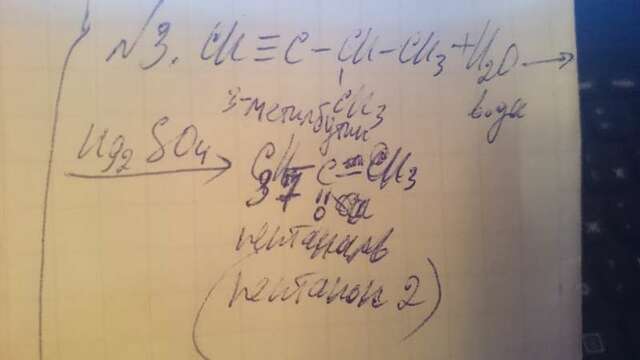 №3. CH≡C-CH-CH3+H2O→
CH3
3-метилбутин
вода
Hg2SO4
CH3 - C - CH3
O
(пентанон 2)